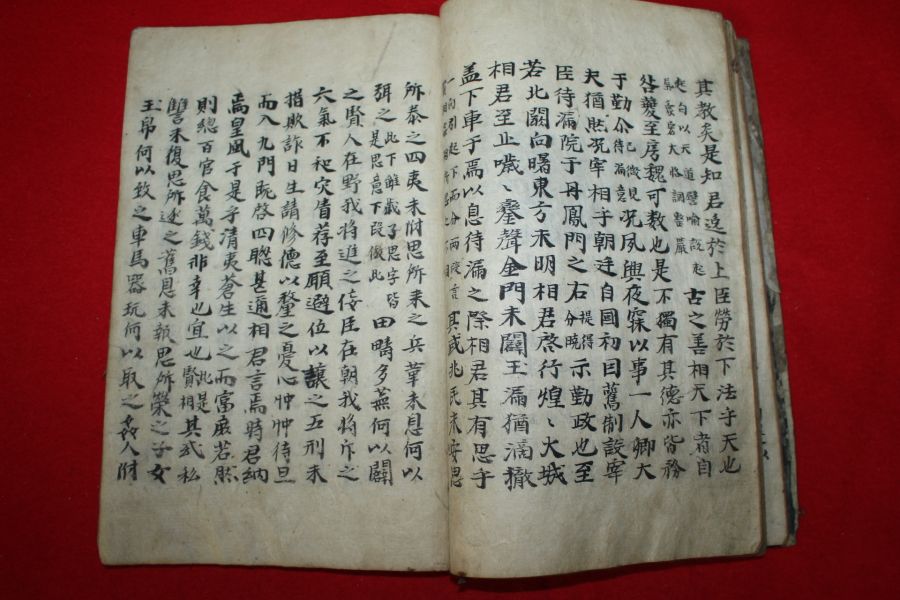 其教矣是知君逸於上臣勞於下法乎天也
起句以天道譬喻設起
大格調豊嚴
古之善相天下者自
咎夔至房魏可數也是不獨有其德亦皆務
于勤尒
已微見待漏意
况夙興夜寐以事一人卿大
夫猶然况宰相乎朝廷自國初因舊制設宰
臣待漏院于丹鳳門之右
提得分曉
示勤政也至
若北闕向曙東方未明相君啓行煌〻大城
相君至止噦〻鑾聲金門未闢玉漏猶滴撤
盖下車于焉以息待漏之際相君其有思乎
一句引起下面分兩段言
其或兆民未安思
所泰之四夷未附思所来之兵革未息何以
弭之
此下雖戴了思字皆是思意下段倣此
田疇多蕪何以闢
之賢人在野我將進之侫臣在朝我將斥之
六氣不和灾眚荐至願避位以讓之五刑未
措欺詐日生請修德以釐之憂心忡忡待旦
而入九門旣啓四聡甚邇相君言焉時君納
焉皇風于是乎清夷蒼生以之而富庶若然
則總百官食萬錢非幸也宜也
此是賢相
其或私
讐未復思所逐之舊恩未報思所榮之子女
玉帛何以致之車馬器玩何以取之姦人附